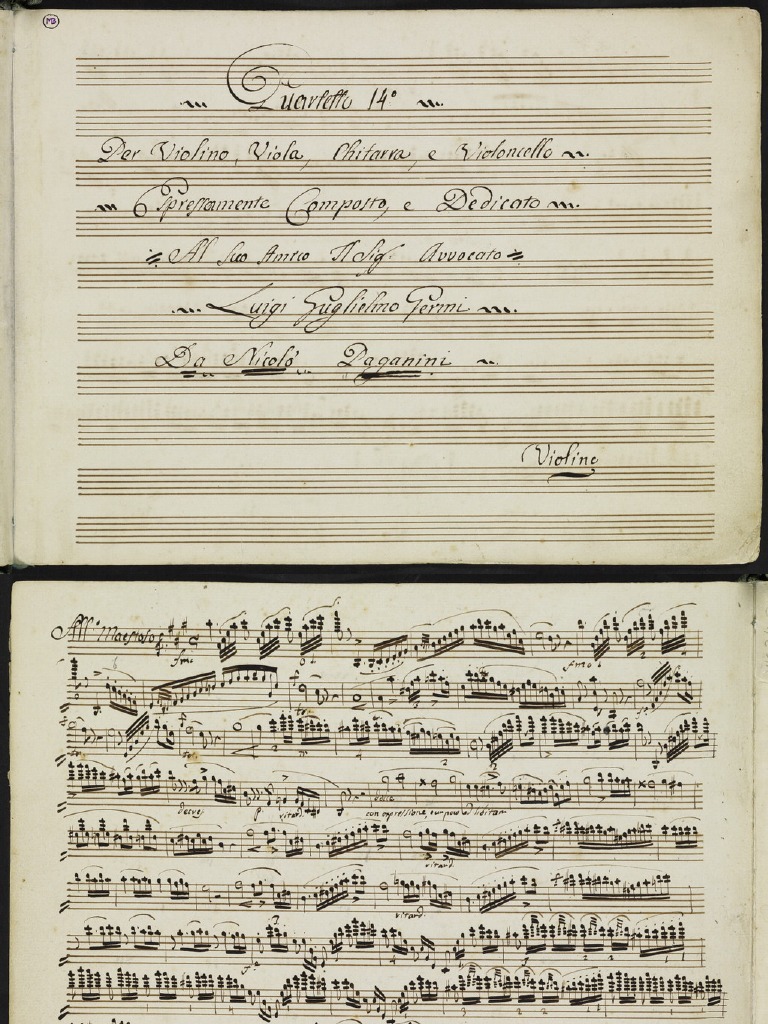 MB
Quartetto 14°
Per Violino, Viola, Chitarra, e Violoncello
Espressamente Composto, e Dedicato
Al Suo Amico Il Sig.r Avvocato
Luigi Guglielmo Germi
Da Nicolò Paganini
Violino
All° Maestoso
decres
P. ritard.
dolce
con espressione, e un poco ad libitum
ritard.
ritard.